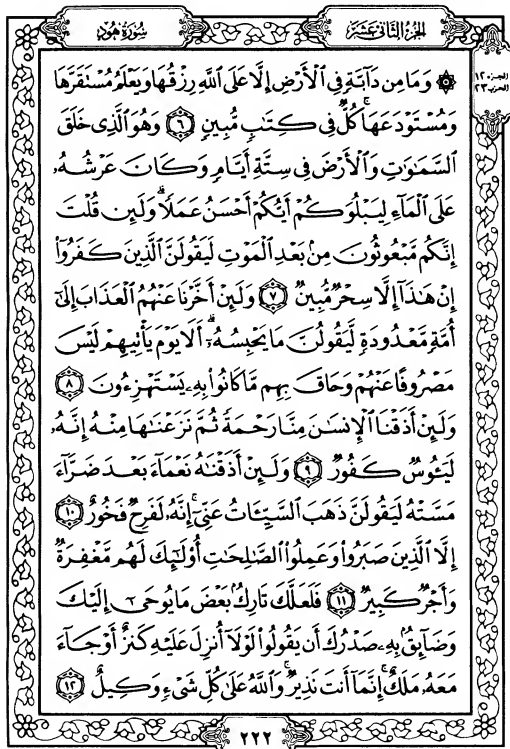 الجزء الثاني عشر
سورة هود
الجزء ١٢
الحزب ٢٣
۞ وَمَا مِن دَآبَّةٍ فِي ٱلْأَرْضِ إِلَّا عَلَى ٱللَّهِ رِزْقُهَا وَيَعْلَمُ مُسْتَقَرَّهَا
وَمُسْتَوْدَعَهَا ۚ كُلٌّ فِي كِتَٰبٍ مُّبِينٍ ٦ وَهُوَ ٱلَّذِي خَلَقَ
ٱلسَّمَٰوَٰتِ وَٱلْأَرْضَ فِي سِتَّةِ أَيَّامٍ وَكَانَ عَرْشُهُۥ
عَلَى ٱلْمَآءِ لِيَبْلُوَكُمْ أَيُّكُمْ أَحْسَنُ عَمَلًا ۗ وَلَئِن قُلْتَ
إِنَّكُم مَّبْعُوثُونَ مِنۢ بَعْدِ ٱلْمَوْتِ لَيَقُولَنَّ ٱلَّذِينَ كَفَرُوٓا۟
إِنْ هَٰذَآ إِلَّا سِحْرٌ مُّبِينٌ ٧ وَلَئِنْ أَخَّرْنَا عَنْهُمُ ٱلْعَذَابَ إِلَىٰٓ
أُمَّةٍ مَّعْدُودَةٍ لَّيَقُولُنَّ مَا يَحْبِسُهُۥٓ ۗ أَلَا يَوْمَ يَأْتِيهِمْ لَيْسَ
مَصْرُوفًا عَنْهُمْ وَحَاقَ بِهِم مَّا كَانُوا۟ بِهِۦ يَسْتَهْزِءُونَ ٨
وَلَئِنْ أَذَقْنَا ٱلْإِنسَٰنَ مِنَّا رَحْمَةً ثُمَّ نَزَعْنَٰهَا مِنْهُ إِنَّهُۥ
لَيَـُٔوسٌ كَفُورٌ ٩ وَلَئِنْ أَذَقْنَٰهُ نَعْمَآءَ بَعْدَ ضَرَّآءَ
مَسَّتْهُ لَيَقُولَنَّ ذَهَبَ ٱلسَّيِّـَٔاتُ عَنِّيٓ ۚ إِنَّهُۥ لَفَرِحٌ فَخُورٌ ١٠
إِلَّا ٱلَّذِينَ صَبَرُوا۟ وَعَمِلُوا۟ ٱلصَّٰلِحَٰتِ أُو۟لَٰٓئِكَ لَهُم مَّغْفِرَةٌ
وَأَجْرٌ كَبِيرٌ ١١ فَلَعَلَّكَ تَارِكٌۢ بَعْضَ مَا يُوحَىٰٓ إِلَيْكَ
وَضَآئِقٌۢ بِهِۦ صَدْرُكَ أَن يَقُولُوا۟ لَوْلَآ أُنزِلَ عَلَيْهِ كَنزٌ أَوْ جَآءَ
مَعَهُۥ مَلَكٌ ۚ إِنَّمَآ أَنتَ نَذِيرٌ ۚ وَٱللَّهُ عَلَىٰ كُلِّ شَيْءٍ وَكِيلٌ ١٢
٢٢٢